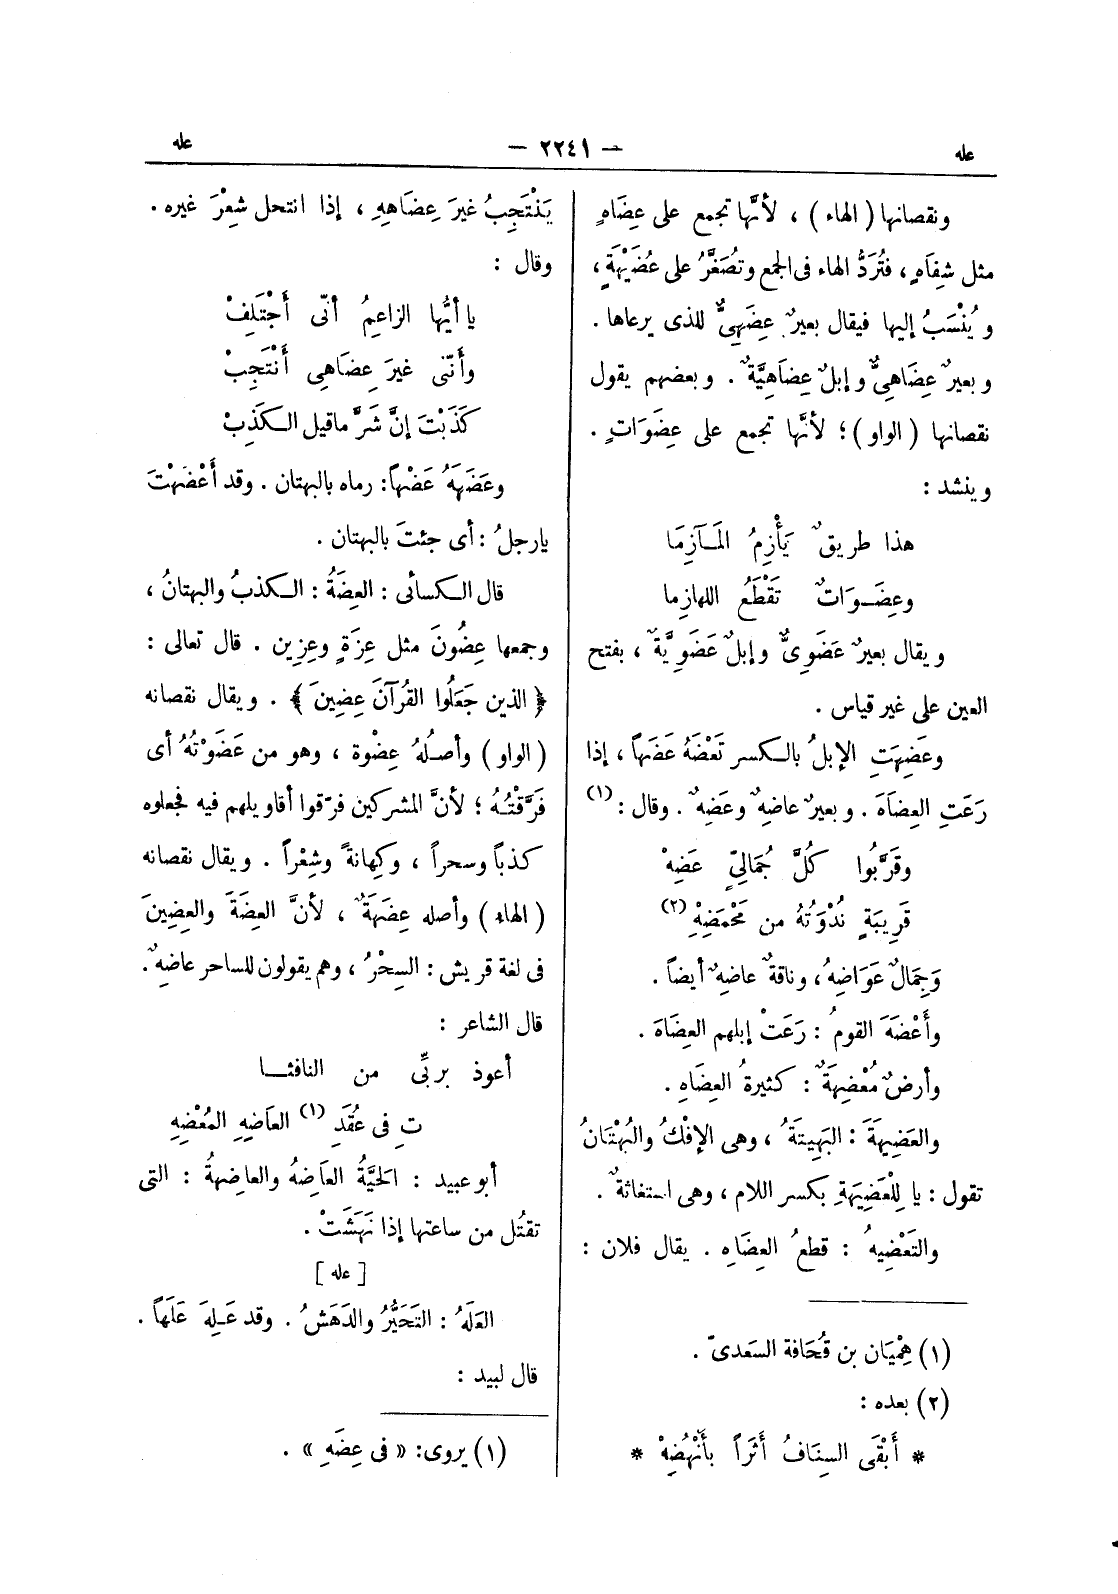 عله
— ٢٢٤١ —
عله
ونقصانها (الهاء) ، لأنَّها تجمع على عِضَاهٍ
مثل شِفاَهٍ، فتُرَدُّ الهاء فى الجمع وتُصَغَّرُ على عُضَيْهَةٍ،
ويُنْسَبُ إليها فيقال بعيرٌ عِضَهِىٌّ للذى يرعاها .
وبعيرٌ عِضَاهِىٌّ وإبلٌ عِضاَهِيَّةٌ . وبعضهم يقول
نقصانها (الواو)؛ لأنَّها تجمع على عِضَوَاتٍ .
وينشد :
هذا طريقٌ يَأْزِمُ المَآزِمَا
وعِضَوَاتٌ تَقْطَعُ اللهازِما
ويقال بعيرٌ عَضَوِىٌّ وإبلٌ عَضَوِيَّةٌ ، بفتح
العين على غير قياس .
وعَضِهَتِ الإبلُ بالكسر تَعْضَهُ عَضَهاً ، إذا
رَعَتِ العِضاَهَ . وبعيرٌ عاضِهٌ وعَضِهٌ . وقال : (١)
وقَرَّبُوا كُلَّ جُمَالِيٍّ عَضِهْ
قَرِيبَةٍ نُدْوَتُهُ من مَحْمَضِهْ (٢)
وَجِمَالٌ عَوَاضِهُ، وناقةٌ عاضِهٌ أيضاً .
وأَعْضَهَ القومُ : رَعَتْ إبلهم العِضَاهَ .
وأرضٌ مُعْضِهَةٌ : كثيرةُ العِضَاهِ .
والعَضِيهَةَ : البَهِيتَةُ ، وهى الإفْكُ والبُهْتَانُ
تقول : يا لِلْعَضِيَهةِ بكسر اللام ، وهى استغاثةٌ .
والتَعْضِيهُ : قطعُ العِضَاهِ . يقال فلان :
(١) هِمْيَان بن قُحَافة السَعدىّ .
(٢) بعده :
* أَبْقَى السِنَافُ أَثَراً بأَنْهُضِهْ *
يَنْتَجِبُ غيرَ عِضَاهِهِ ، إذا انتحل شِعْرَ غيره .
وقال :
يا أيُّها الزاعِمُ أنّى أَجْتَلِفْ
وأَنّنى غيرَ عِضَاهِى أَنْتَجِبْ
كَذَبْتَ إنَّ شَرَّ ماقيل الكَذِبْ
وعَضَهَهُ عَضْهاً: رماه بالبهتان . وقد أَعْضَهْتَ
يارجلُ : أى جئتَ بالبهتان .
قال الكسائى : العِضَةُ : الكذبُ والبهتانُ ،
وجمعها عِضُونَ مثل عِزَةٍ وعِزِين . قال تعالى :
﴿الذين جَعَلُوا القُرآنَ عِضِينَ﴾ . ويقال نقصانه
(الواو) وأصلُهُ عِضْوة ، وهو من عَضَوْتُهُ أى
فَرَّقْتُهُ ؛ لأنَّ المشركين فرّقوا أقاويلهم فيه فجعلوه
كذباً وسحراً ، وكِهانةً وشِعْراً . ويقال نقصانه
(الهاء) وأصله عِضَهَةٌ ، لأنَّ العِضَةَ والعِضِينَ
فى لغة قريش : السِحْرُ ، وهم يقولون للساحر عاضِهٌ.
قال الشاعر :
أعوذ بربِّى من النافثا
تِ فى عُقَدِ (١) العاَضِهِ المُعْضِهِ
أبو عبيد : الحَيَّةُ العَاضِهُ والعاضِهةُ : التى
تقتُل من ساعتها إذا نَهَشَتْ .
[ عله ]
العَلَهُ : التَحَيُّرُ والدَهَشُ . وقد عَلِهَ عَلَهاً .
قال لبيد :
(١) يروى: « فى عِضَهِ » .